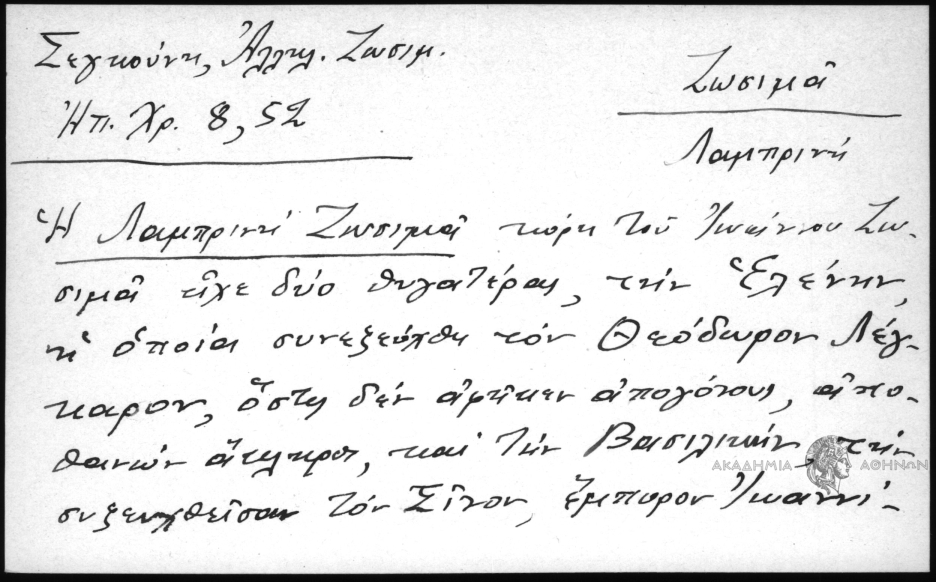 Σεγκούνη, Ἀλληλ. Ζωσιμ.
Ἠπ. Χρ. 8, 52
Ζωσιμᾶ
Λαμπρινή
Ἡ Λαμπρινή Ζωσιμᾶ κόρη τοῦ Ἰωάννου Ζω-
σιμᾶ εἶχε δύο θυγατέρας, τήν Ἑλένην,
ἡ ὁποία συνεζεύχθη τόν Θεόδωρον Λέγ-
καρον, ὅστις δέν ἀφῆκεν ἀπογόνους, ἀπο-
θανών ἄτεκνος, καί τήν Βασιλικήν, τήν
συζευχθεῖσαν τόν Σῖνον, ἔμπορον Ἰωαννί-
ΑΚΑΔΗΜΙΑ ΑΘΗΝΩΝ